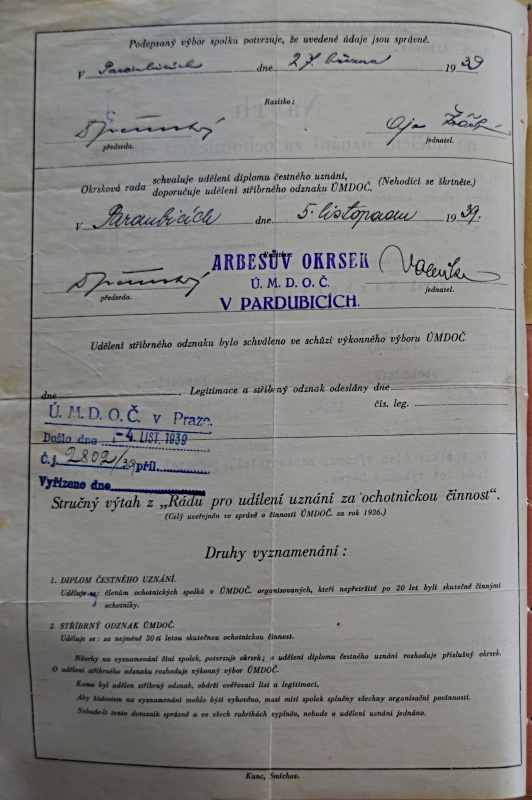 Podepsaný výbor spolku potvrzuje, že uvedené údaje jsou správné.
V Pardubicích dne 27. března 1939
Razítko:
předseda. jednatel.
Okrsková rada schvaluje udělení diplomu čestného uznání,
doporučuje udělení stříbrného odznaku ÚMDOČ. (Nehodící se škrtněte.)
V Pardubicích dne 5. listopadu 1939.
ARBESŮV OKRSEK
Ú. M. D. O. Č.
V PARDUBICÍCH.
předseda. jednatel.
Udělení stříbrného odznaku bylo schváleno ve schůzi výkonného výboru ÚMDOČ
dne . Legitimace a stříbrný odznak odeslány dne
čís. leg.
Ú. M. D. O. Č. v Praze.
Došlo dne -4. LIST. 1939
Č. j. 2802/39 příl.
Vyřízeno dne
Stručný výtah z „Řádu pro udílení uznání za ochotnickou činnost“.
(Celý uveřejněn ve zprávě o činnosti ÚMDOČ. za rok 1936.)
Druhy vyznamenání :
1. DIPLOM ČESTNÉHO UZNÁNÍ.
Uděluje se: členům ochotnických spolků v ÚMDOČ. organisovaných, kteří nepřetržitě po 20 let byli skutečně činnými
ochotníky.
2. STŘÍBRNÝ ODZNAK ÚMDOČ.
Uděluje se: za nejméně 30ti letou skutečnou ochotnickou činnost.
Návrhy na vyznamenání činí spolek, potvrzuje okrsek; o udělení diplomu čestného uznání rozhoduje příslušný okrsek.
O udělení stříbrného odznaku rozhoduje výkonný výbor ÚMDOČ.
Komu byl udělen stříbrný odznak, obdrží ověřovací list a legitimaci.
Aby žádostem na vyznamenání mohlo býti vyhověno, musí míti spolek splněny všechny organisační povinnosti.
Nebude-li tento dotazník správně a ve všech rubrikách vyplněn, nebude o udělení uznání jednáno.
Kunc, Smíchov.